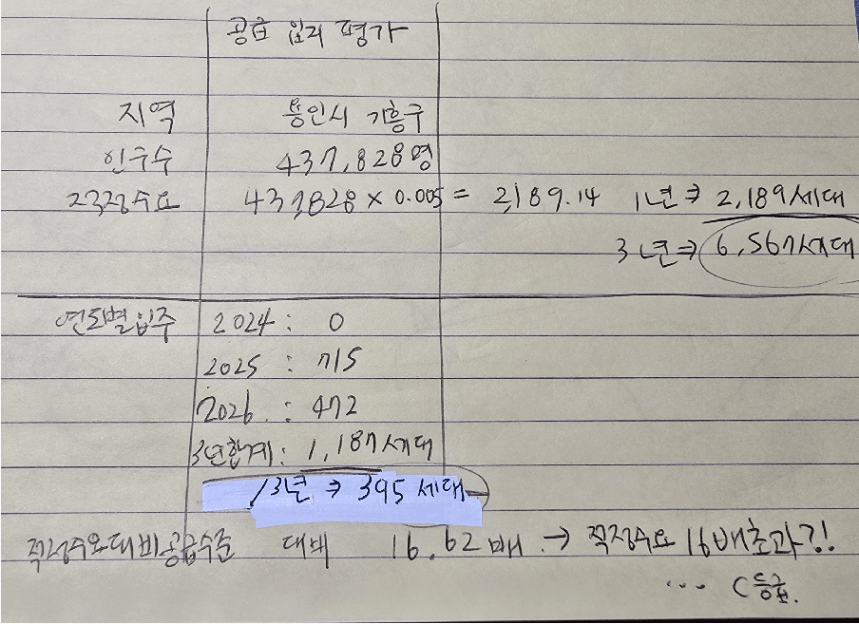 공급 입지 평가
지역 용인시 기흥구
인구수 437,828명
적정수요 437,828 × 0.005 = 2,189.14 1년 ⇒ 2,189세대
3년 ⇒ 6,567세대
연도별입주 2024 : 0
2025 : 715
2026 : 472
3년합계 : 1,187세대
/3년 → 395세대
적정수요대비공급수준 대비 16.62배 → 적정수요 16배초과?!
... C등급.